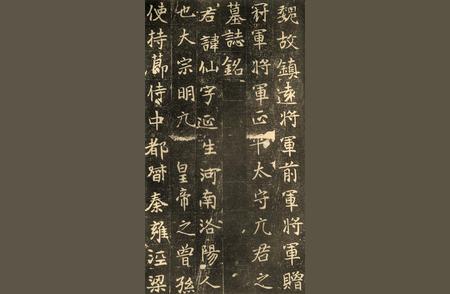 魏故鎮遠將軍前軍將軍贈
冠軍將軍正平太守元君之
墓誌銘
君諱仙字延生河南洛陽人
也大宗明元 皇帝之曾孫
使持節侍中都督秦雍涇梁